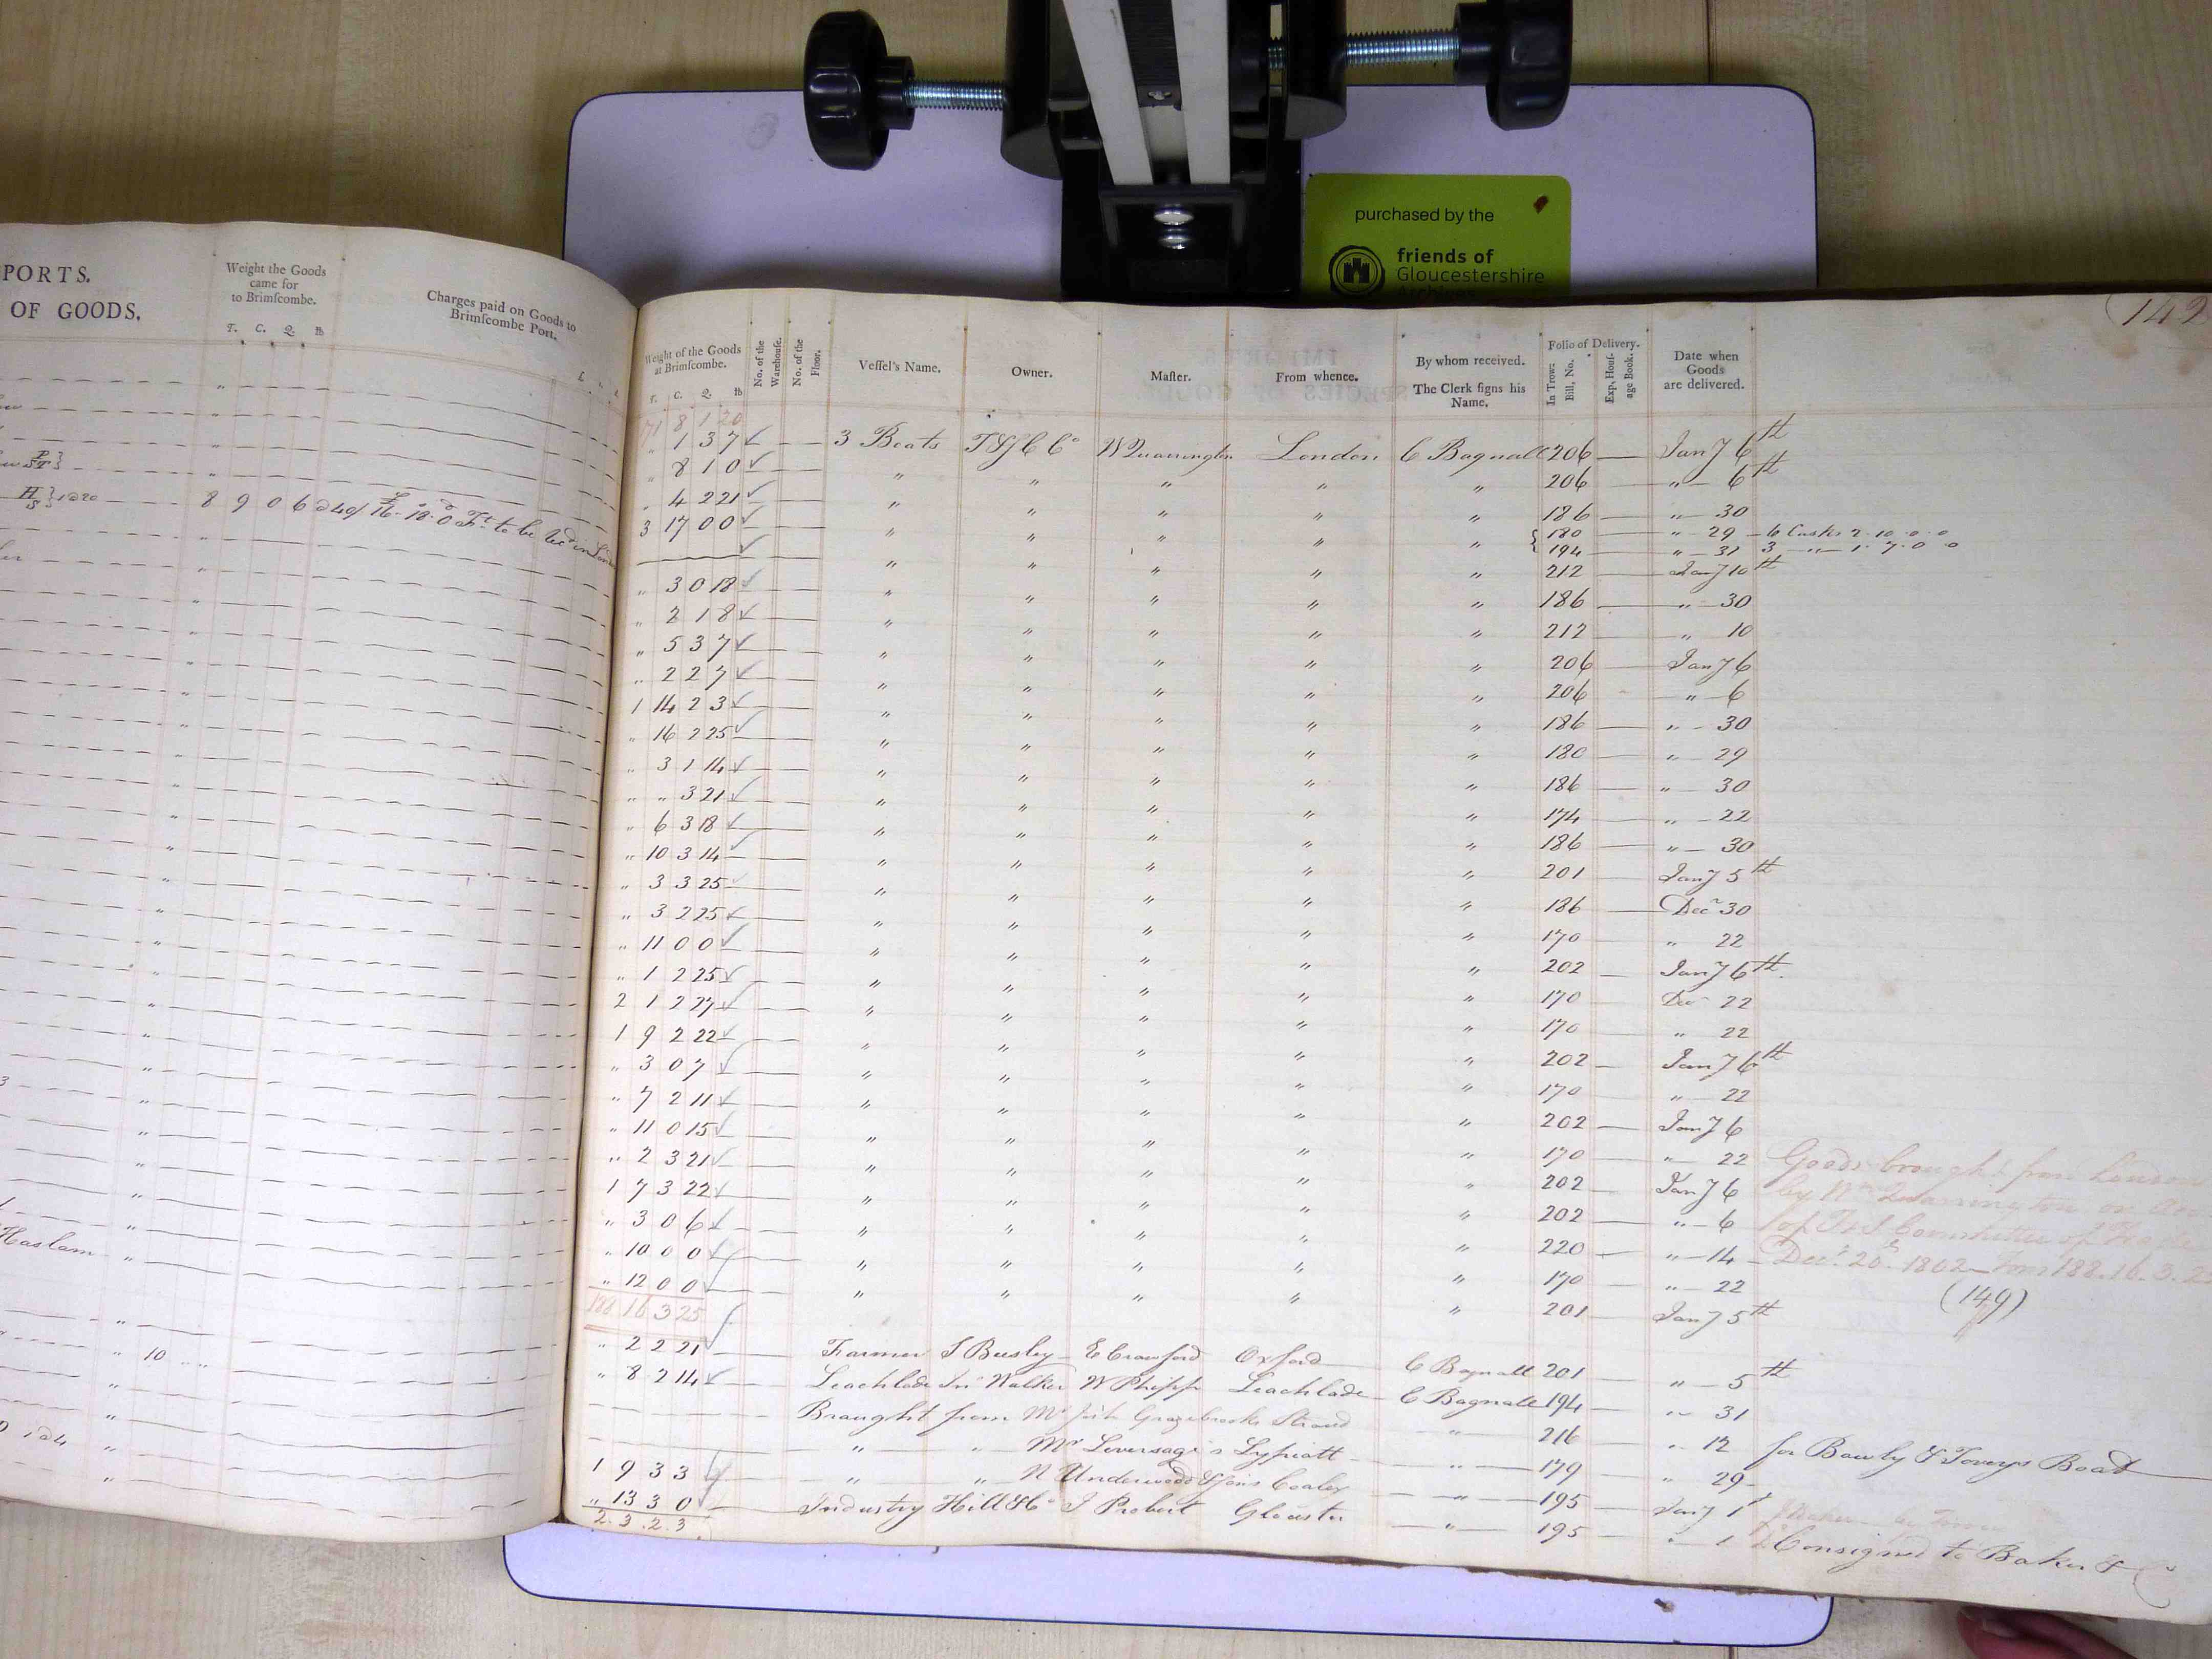 purchased by the
friends of
Gloucestershire
Archives
PORTS.
OF GOODS.
Weight the Goods came for to Brimſcombe.
T. C. Q. lb
Charges paid on Goods to Brimſcombe Port.
8 9 0 6 @ 40/ 16. 18. 0 to be
Haslam
10
142
Weight of the Goods at Brimſcombe.
T. C. Q. lb
No. of the Warehouſe.
No. of the Floor.
Veſſel's Name.
Owner.
Maſter.
From whence.
By whom received.
The Clerk ſigns his Name.
Folio of Delivery.
In Trow: Bill, No.
Exp, Houſ- age Book.
Date when Goods are delivered.
171 8 1 20
" 1 3 7 3 Boats TS&C Co W Quarrington London C Bagnall 206 Jany 6th
" 8 1 0 " " " " " 206 " 6th
" 4 2 21 " " " " " 186 " 30
3 17 0 0 " " " " " 180 " 29 6 Casks 2. 10. 0. 0
194 " 31 3 " 1. 7. 0. 0
" " " " " 212 Jany 10th
" 3 0 18 " " " " " 186 " 30
" 2 1 8 " " " " " 212 " 10
" 5 3 7 " " " " " 206 Jany 6
" 2 2 7 " " " " " 206 " 6
1 14 2 3 " " " " " 186 " 30
" 16 2 25 " " " " " 180 " 29
" 3 1 14 " " " " " 186 " 30
" " 3 21 " " " " " 174 " 22
" 6 3 18 " " " " " 186 " 30
" 10 3 14 " " " " " 201 Jany 5th
" 3 3 25 " " " " " 186 Decr 30
" 3 2 25 " " " " " 170 " 22
" 11 0 0 " " " " " 202 Jany 6th
" 1 2 25 " " " " " 170 Decr 22
2 1 2 27 " " " " " 170 " 22
1 9 2 22 " " " " " 202 Jany 6th
" 3 0 7 " " " " " 170 " 22
" 7 2 11 " " " " " 202 Jany 6
" 11 0 15 " " " " " 170 " 22
" 2 3 21 " " " " " 202 Jany 6
1 7 3 22 " " " " " 202 " 6
" 3 0 6 " " " " " 220 " 14
" 10 0 0 " " " " " 170 " 22
" 12 0 0 " " " " " 201 Jany 5th
Goods brought from London
by Wm Quarrington on
of T&S Committee of Trade
Decr 20 1802 Tons 188. 16. 3. 2
(149)
188 16 3 25
" 2 2 21 Farmer J Busley E Crawford Oxford C Bagnall 201 " 5th
" 8 2 14 Leachlade Jno Walker W Phipps Leachlade C Bagnall 194 " 31
Braught from Mr Grazebrooks Stroud " 216 " 12 for Bawly & Toverys Boat
" " Mr Leversage's Lypiatt " 179 " 29
1 9 3 3 " " N Underwood & Sons Coaley " 195 Jany 1
" 13 3 0 Industry Hill & Co J Probert Gloucster " 195 " 1 Consigned to Baker & Co
2. 3. 2. 3